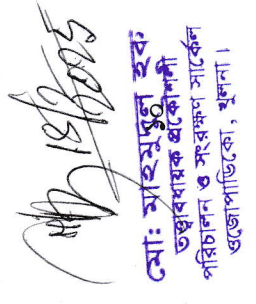 18/2025
মো: মাহমুদুল হক
তত্ত্বাবধায়ক প্রকৌশলী
পরিচালন ও সংরক্ষণ সার্কেল
ওজোপাডিকো, খুলনা।